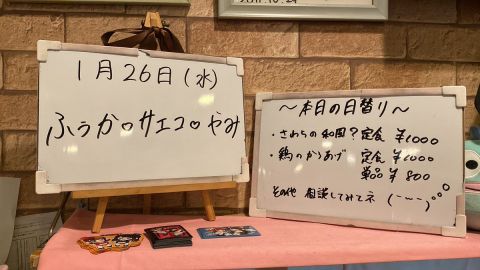 1月26日(水)
ふうか♡サエコ♡やみ
～本日の日替り～
・さわらの和風?定食 ¥1000
・鶏のからあげ 定食 ¥1000
単品 ¥800
その他 相談してみてネ (-~-)。oO